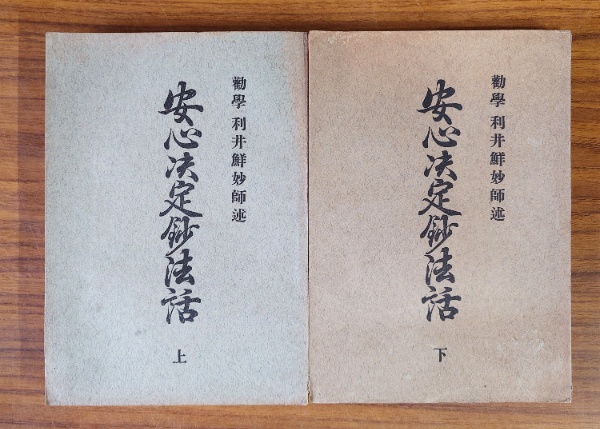 勸學 利井鮮妙師述
安心决定鈔法話
上
勸學 利井鮮妙師述
安心决定鈔法話
下